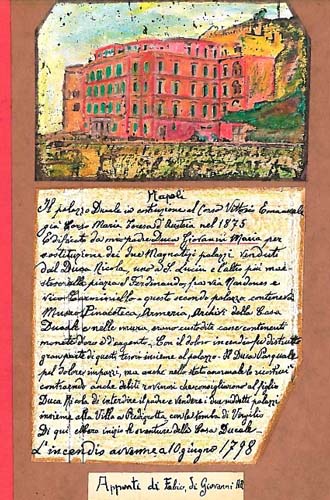 Napoli
Il palazzo Ducale in costruzione al Corso Vittorio Emanuele
già Corso Maria Teresa d'Austria nel 1875
Edificato da mio padre Duca Giovanni Maria per
sostituzione dei due Magnatizi palazzi venduti
dal Duca Nicola, uno a S. Lucia e l'altro più mae
stoso alla piazza S. Ferdinando fra via Nardones e
vico - questo secondo palazzo conteneva
Museo Pinacoteca, Armeria, Archivi della Casa
Ducale e nelle mura erano custodite casse contenenti
monete d'oro e d'argento. Con il doloso incendio fu distrutto
gran parte di questi tesori insieme al palazzo. Il Duca Pasquale
pel dolore impazzì, ma anche nello stato anormale lo ricostruì
contraendo anche debiti rovinosi che consigliarono al figlio
Duca Nicola di interdire il padre e vendere i due palazzi
insieme alla Villa a Piedigrotta, con la tomba di Virgilio
Di qui ebbero inizio le sventure della Casa Ducale.
L'incendio avvenne a 10 giugno 1798
Appunti di Fabio, di Giovanni